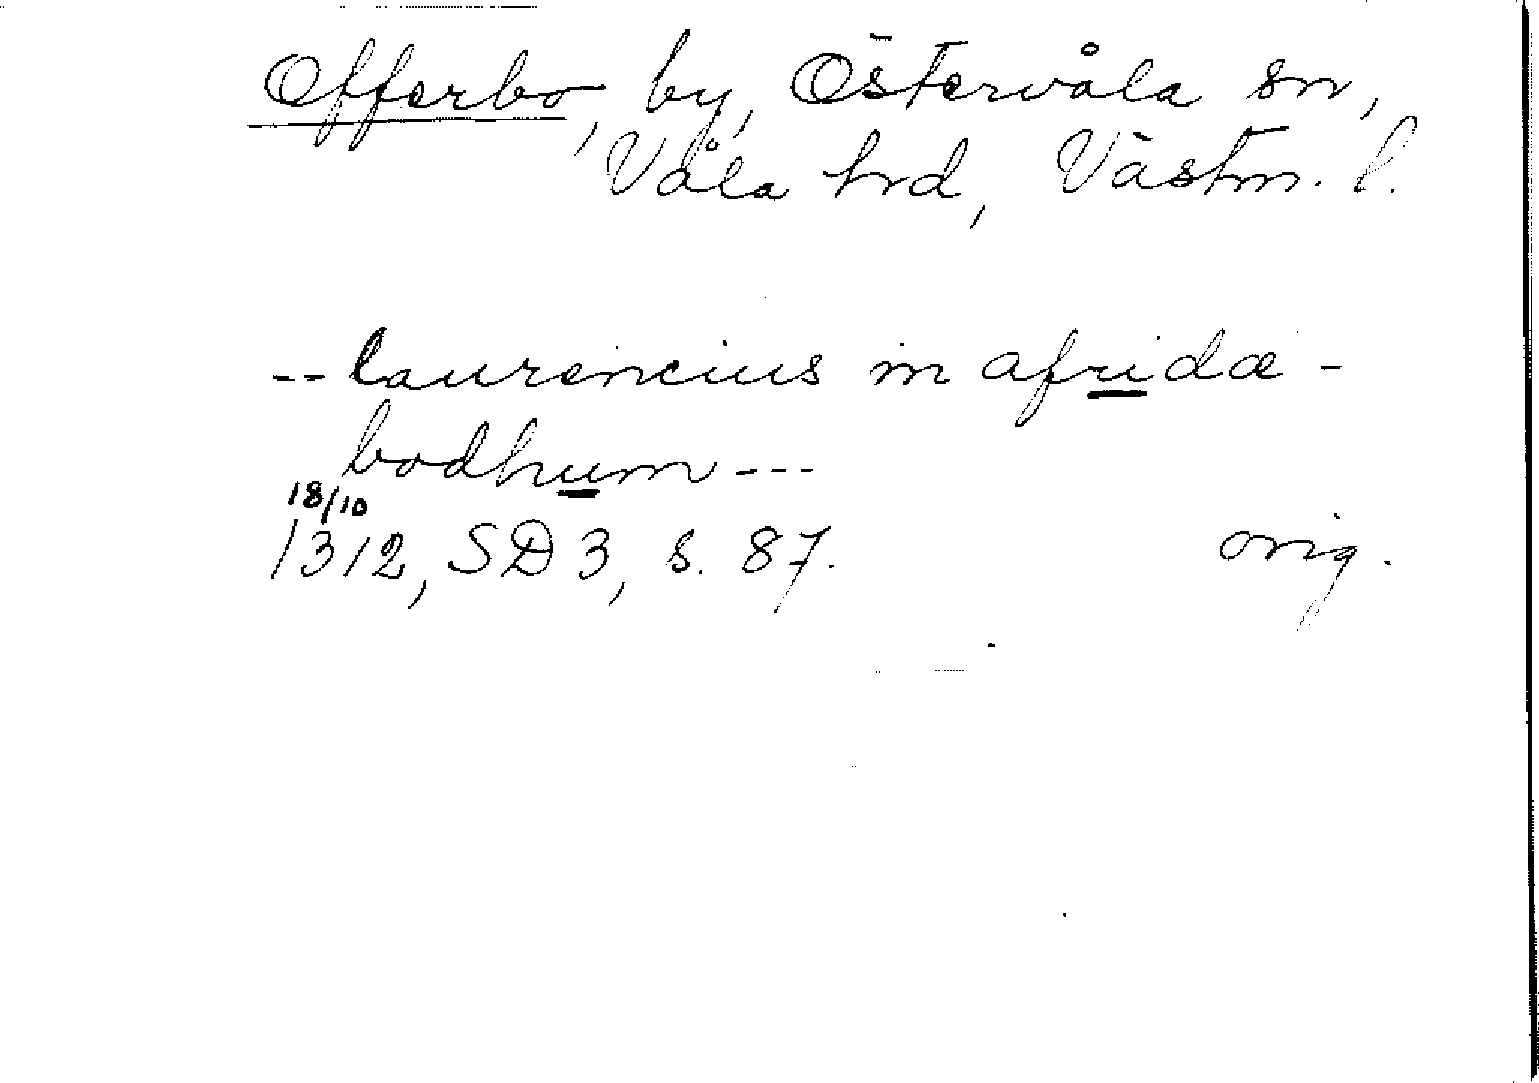 Offerbo, by, Östervåla sn,
Våla hrd, Västm. l.
-- laurencius in afridæ-
bodhum ---
18/10
1312, SD 3, s. 87. orig.